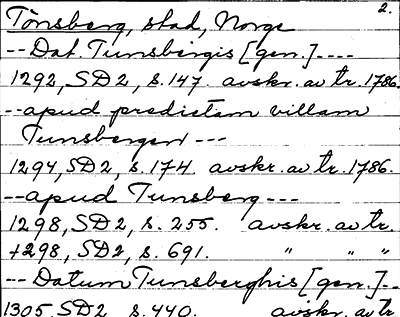 2.
Tönsberg, stad, Norge
-- Dat. Tunsbergis [gen.] ----
1292, SD2, s. 147. avskr. av tr. 1786.
-- apud predictam villam
Tunsbergen ---
1294, SD2, s. 174. avskr. av tr. 1786.
-- apud Tunsberg ---
1298, SD2, s. 255. avskr. av tr.
1298, SD2, s. 691. " " "
-- Datum Tunsberghis [gen.] --
1305, SD2, s. 440. avskr. av tr.